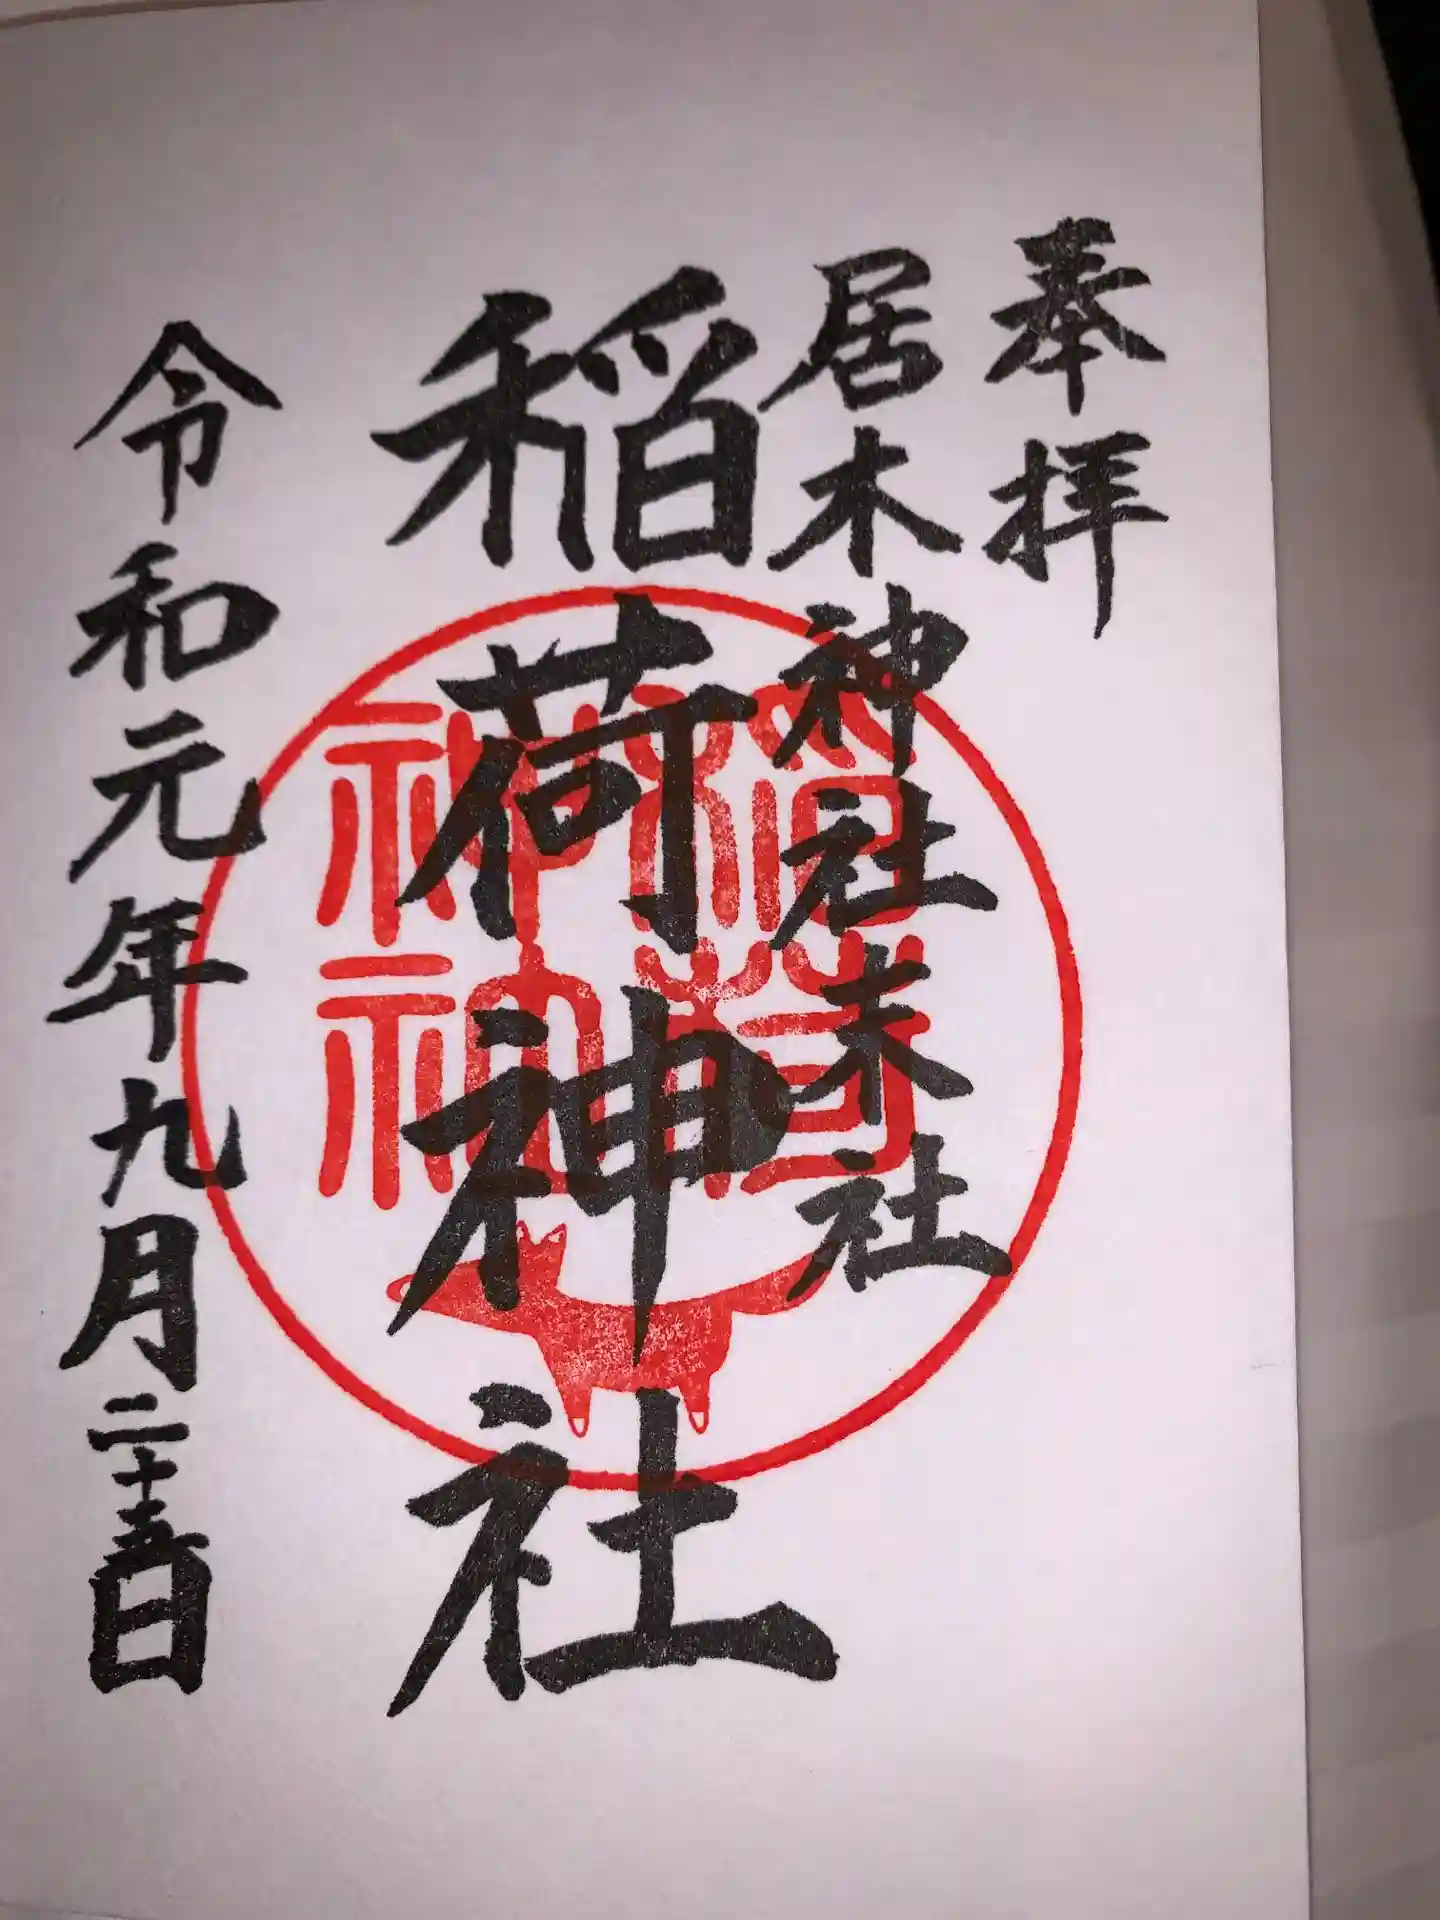 奉拝
居木神社末社
稲荷神社
稲荷
神社
令和元年九月二十五日